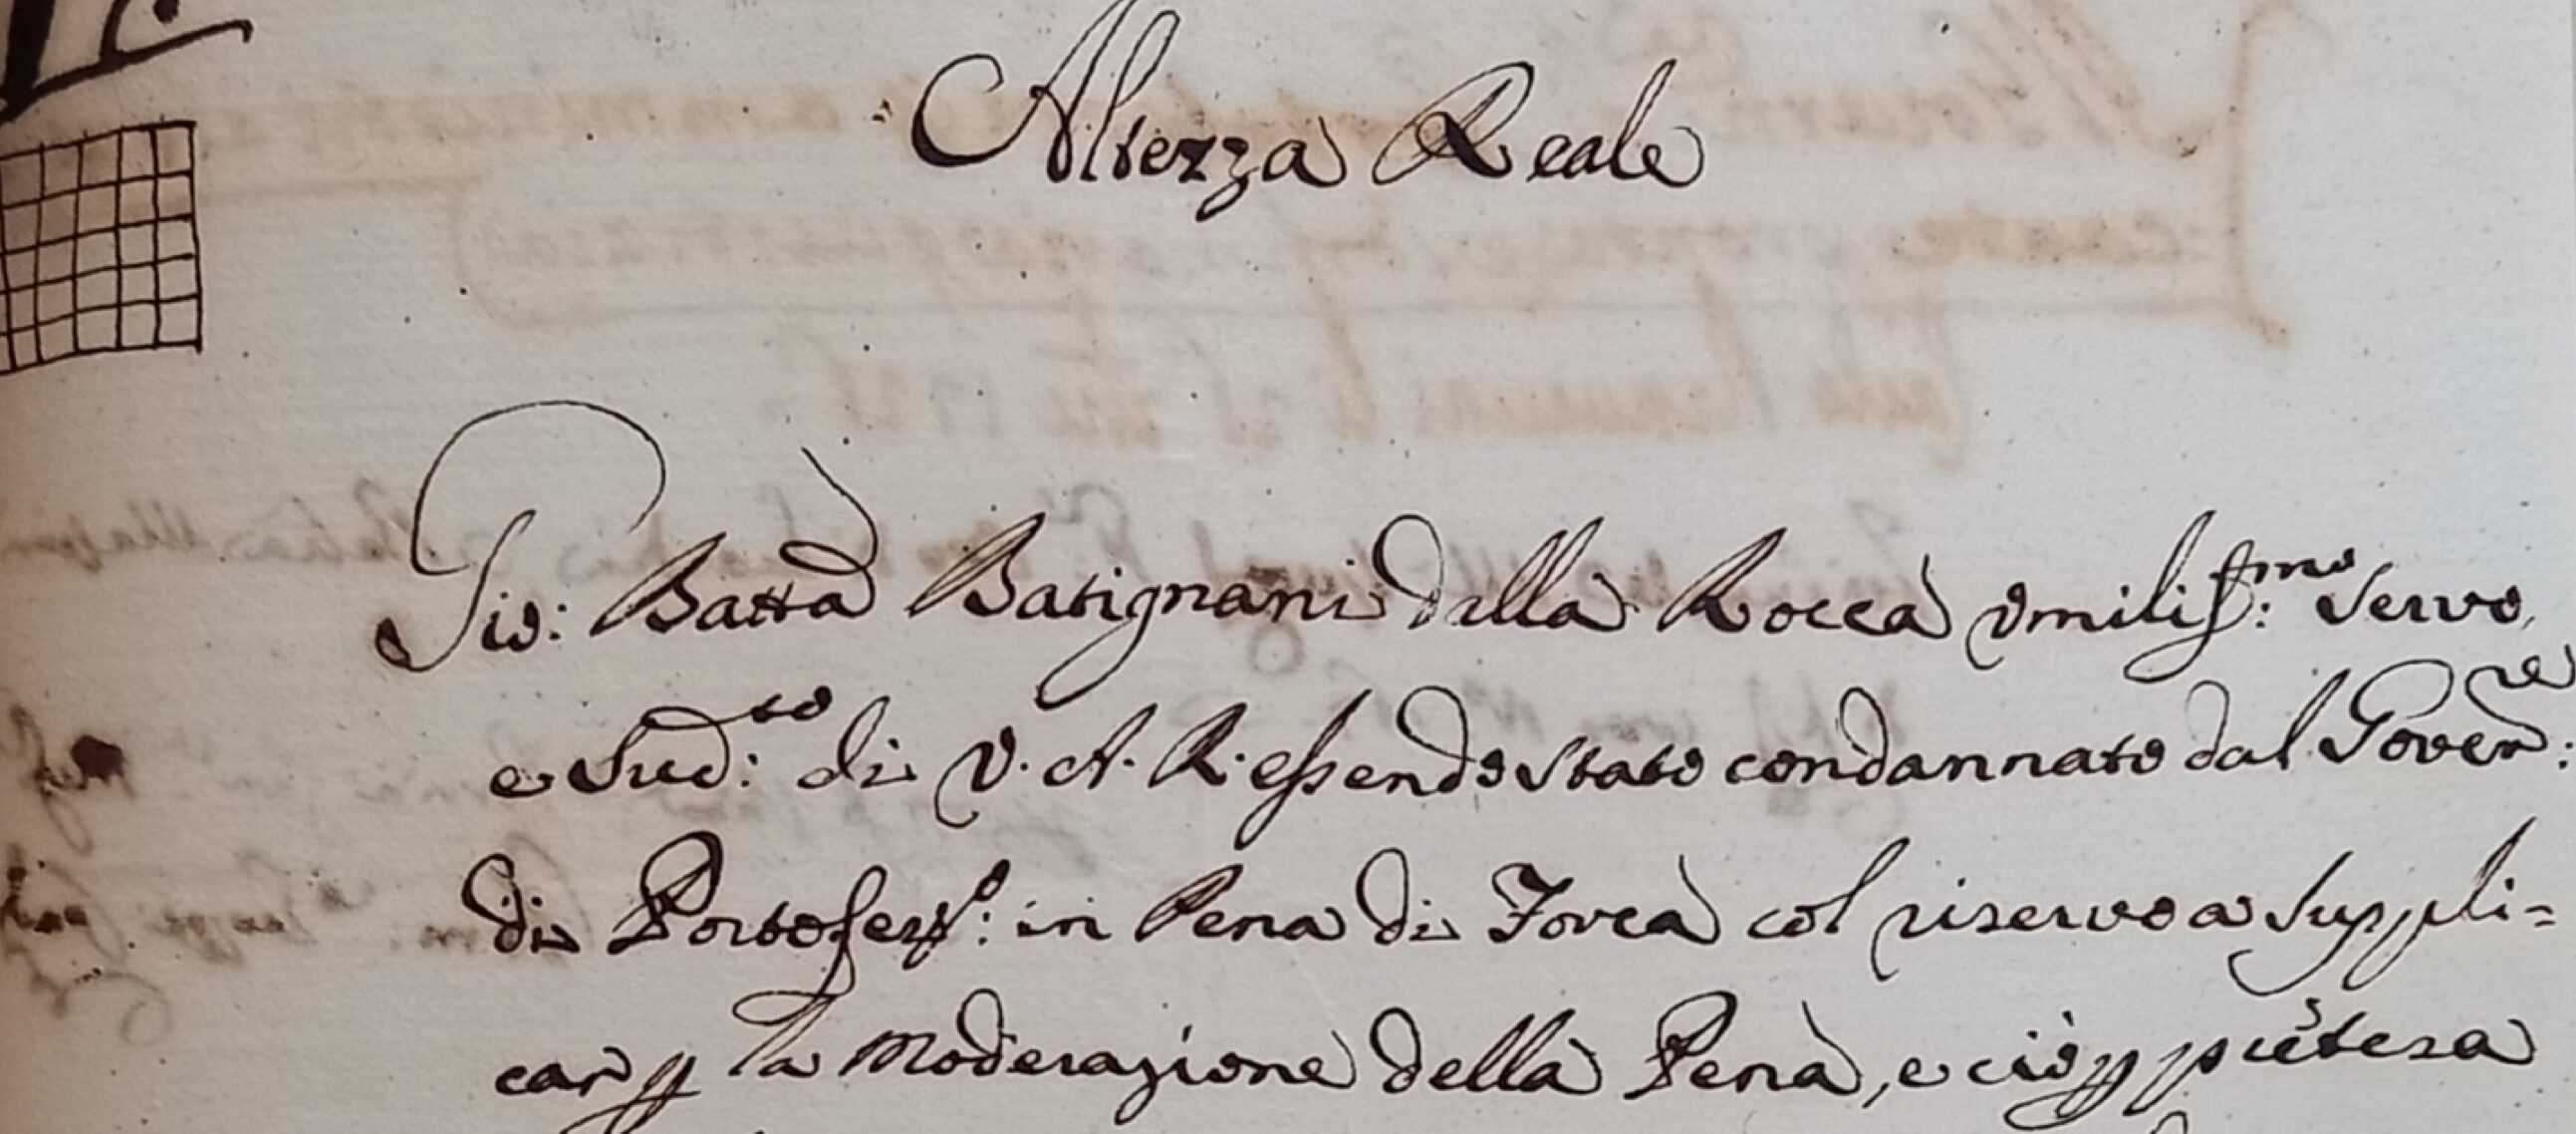 Altezza Reale
Gio: Batta Batignani della Rocca Umiliss:mo Servo,
e Sud:to di V. A. R. essendo stato condannato dal Gover:re
di Portoferr:o in Pena di Forca col riservo a suppli=
car p la Moderazione della Pena, e ciò p